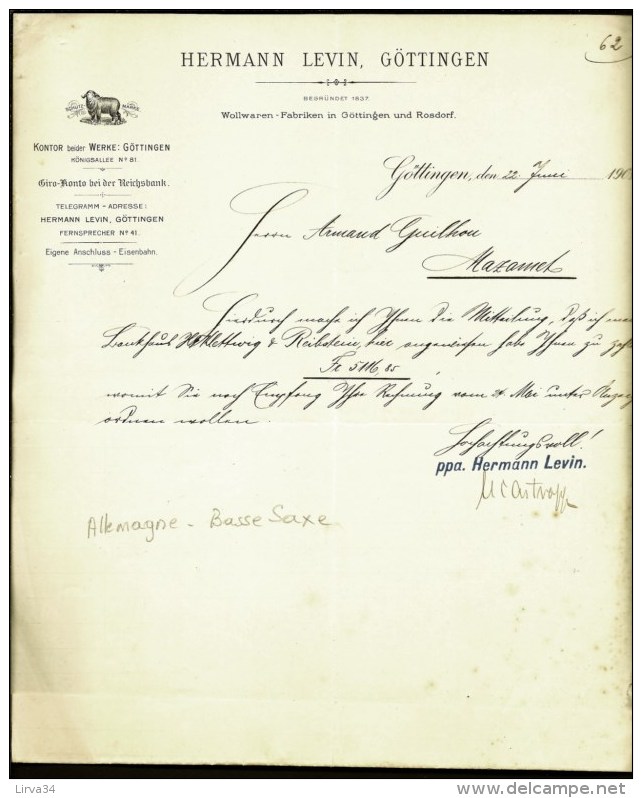 62
HERMANN LEVIN, GÖTTINGEN
BEGRÜNDET 1837.
Wollwaren-Fabriken in Göttingen und Rosdorf.
SCHUTZ MARKE
KONTOR beider WERKE: GÖTTINGEN
KÖNIGSALLEE Nº 81.
Giro-Konto bei der Reichsbank.
TELEGRAMM-ADRESSE:
HERMANN LEVIN, GÖTTINGEN
FERNSPRECHER Nº 41.
Eigene Anschluss-Eisenbahn.
Göttingen, den 22 Juni 190
Herrn Armand Guilhou
Mazamet
Hierdurch mache ich Ihnen die Mitteilung, daß ich
Bankhaus Klettwig & Reibstein, hier, angewiesen habe Ihnen zu
Fr 5116 85
womit Sie nach Empfang Ihre Rechnung vom Mai unter
ordnen wollen.
Hochachtungsvoll!
ppa. Hermann Levin.
Allemagne - Basse Saxe
Lirva34
delcampe.net